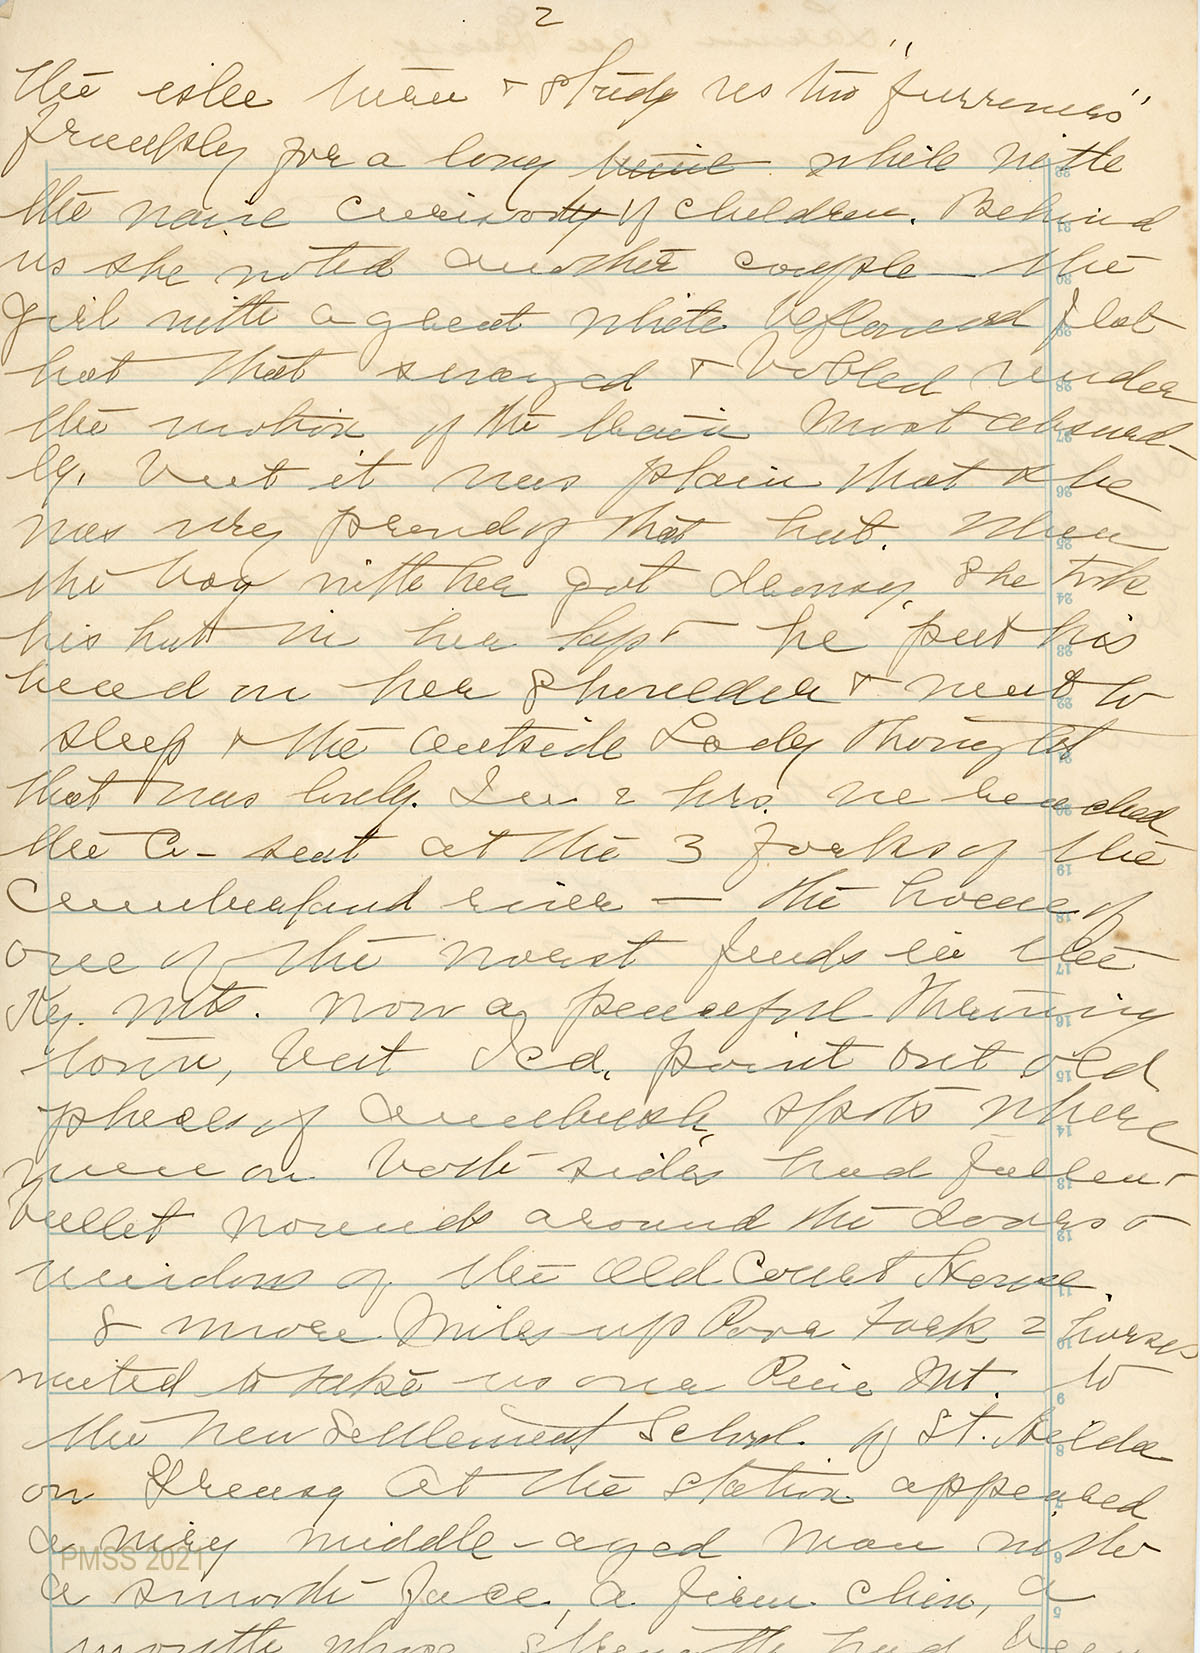 2
the aisle then & study us two "furriners"
frankly for a long time while with
the naive curiosity of children. Behind
us she noted another couple — the
girl with a great white beflowered flat
hat that swayed & bobbed under
the motion of the train most absurd-
ly, but it was plain that she
was very proud of that hat. When
the boy with her got drowsy, she took
his hat in her lap & he put his
head on her shoulder & went to
sleep & the outside Lady thought
that was lovely. In 2 hrs. we reached
the Co-seat at the 3 forks of the
Cumberland river — the home of
one of the worst feuds in the
Ky. Mts. Now a peaceful
town, but I cd. point out old
places of ambush, spots where
men on both sides had fallen &
bullet wounds around the doors &
windows of the old Court House.
8 more miles up Poor Fork 2 horses
waited to take us over Pine Mt. to
the new Settlement School of St. Hilda
on Greasy. At the station appeared
a wiry middle-aged man with
a smooth face, a firm chin, a
mouth whose strength had been
PMSS 2021